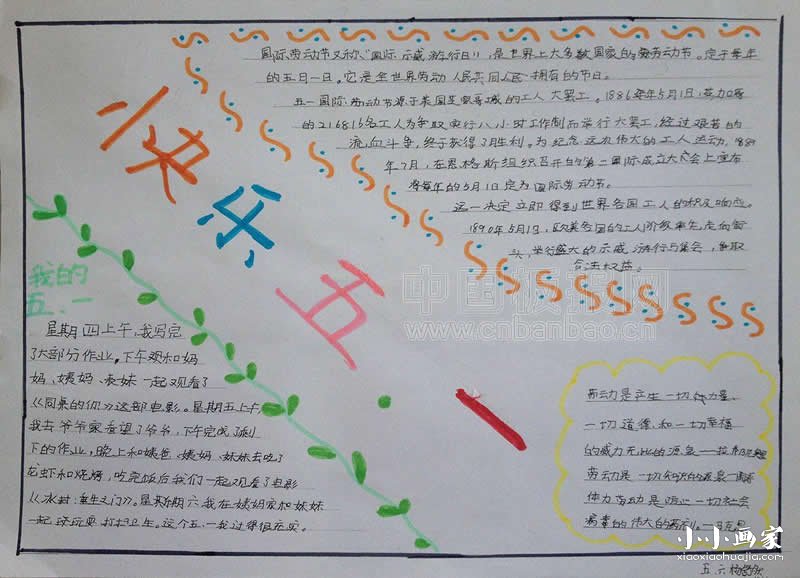 国际劳动节又称“国际示威游行日”，是世界上大多数国家的劳动节。定于每年
的五月一日。它是全世界劳动人民共同人民拥有的节日。
五一国际劳动节源于美国芝加哥城的工人大罢工。1886年5月1日，芝加哥
的216816名工人为争取实行八小时工作制而举行大罢工，经过艰苦的
流血斗争，终于获得了胜利。为纪念这次伟大的工人运动，1889
年7月，在恩格斯组织召开的第二国际成立大会上宣布
将每年的5月1日定为国际劳动节。
这一决定立即得到世界各国工人的积极响应。
1890年5月1日，欧美各国的工人阶级率先走向街
头，举行盛大的示威游行与集会，争取
合法权益。
快乐五·一
我的
五·一
星期四上午，我写完
了大部分作业，下午观和妈
妈、姨妈、表妹一起观看了
《同桌的你》这部电影。星期五上午
我去爷爷家看望了爷爷，下午完成了剩
下的作业，晚上和姨爸、姨妈、妹妹去吃了
龙虾和烧烤，吃完饭后我们一起观看了电影
《冰封：重生之门》。星期六我在姨妈家和妹妹
一起玩耍打扫卫生。这个五·一我过得很充实。
劳动是产生一切力量、
一切道德和一切幸福
的威力无比的源泉——拉·乔乃尼奥里
劳动是一切知识的源泉—陶铸
体力劳动是防止一切社会
病毒的伟大的消毒剂—马克思
中国板报网
www.cnbanbao.cn
小小画家
xiaoxiaohuajia.com
五、六